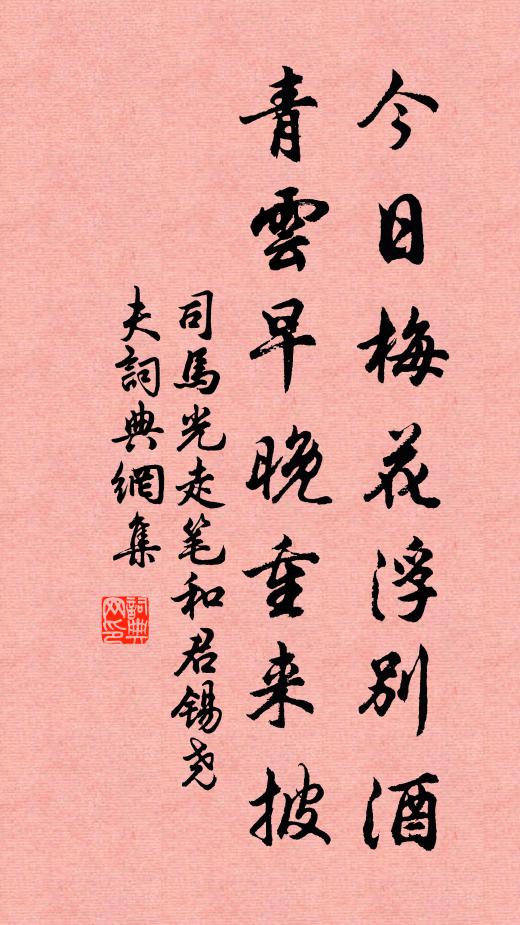 今日梅花浮別酒
青雲早晚重来披
司馬光走笔和君锡尧
夫詞典網集
詞典网印